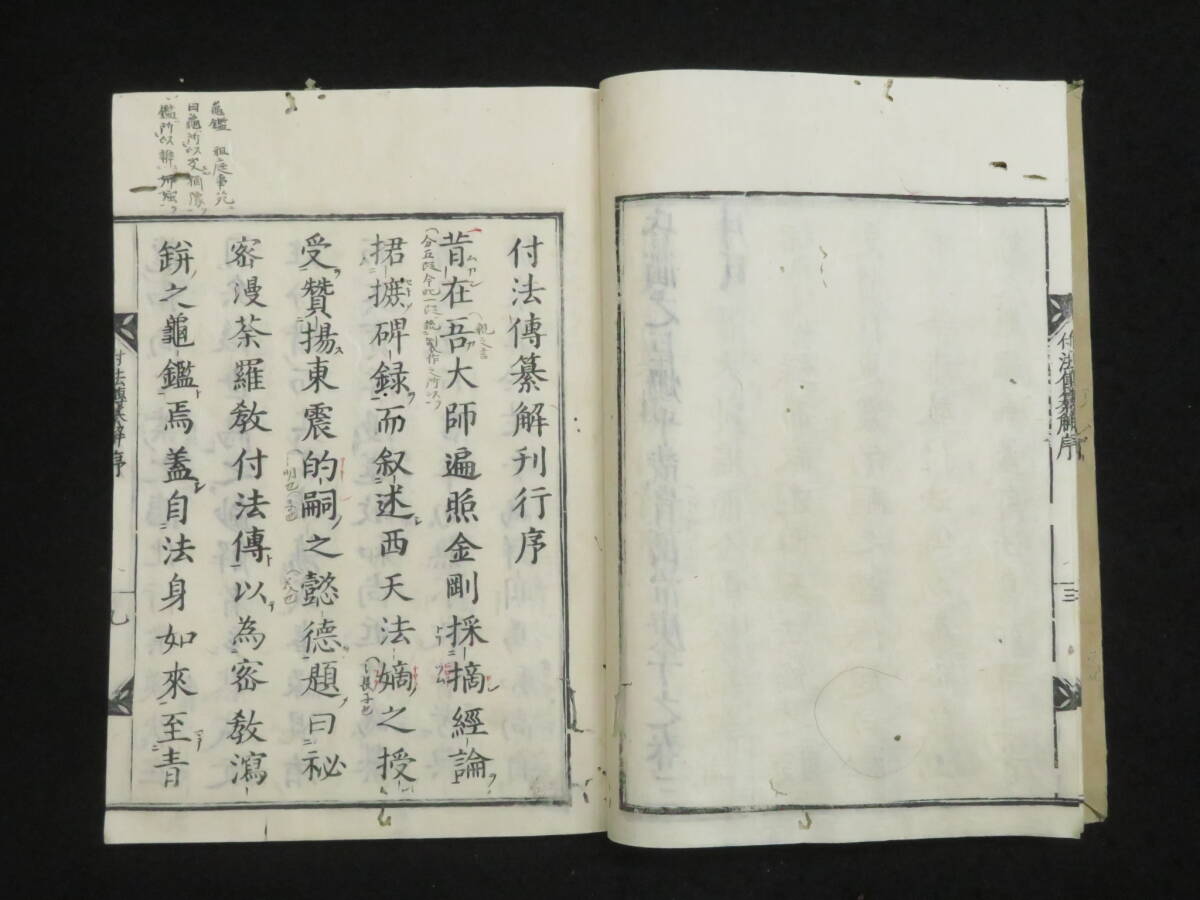 付法傳纂解序
三
付法傳纂解刊行序
昔在吾大師遍照金剛採摘經論
捃摭碑録而叙述西天法嫡之授
受贊揚東震的嗣之懿德題曰祕
密漫荼羅教付法傳以為密教瀉
鉼之龜鑑焉蓋自法身如來至青
龜鑑 祖庭事苑
曰龜所以
鑑所以辨
付法傳纂解序